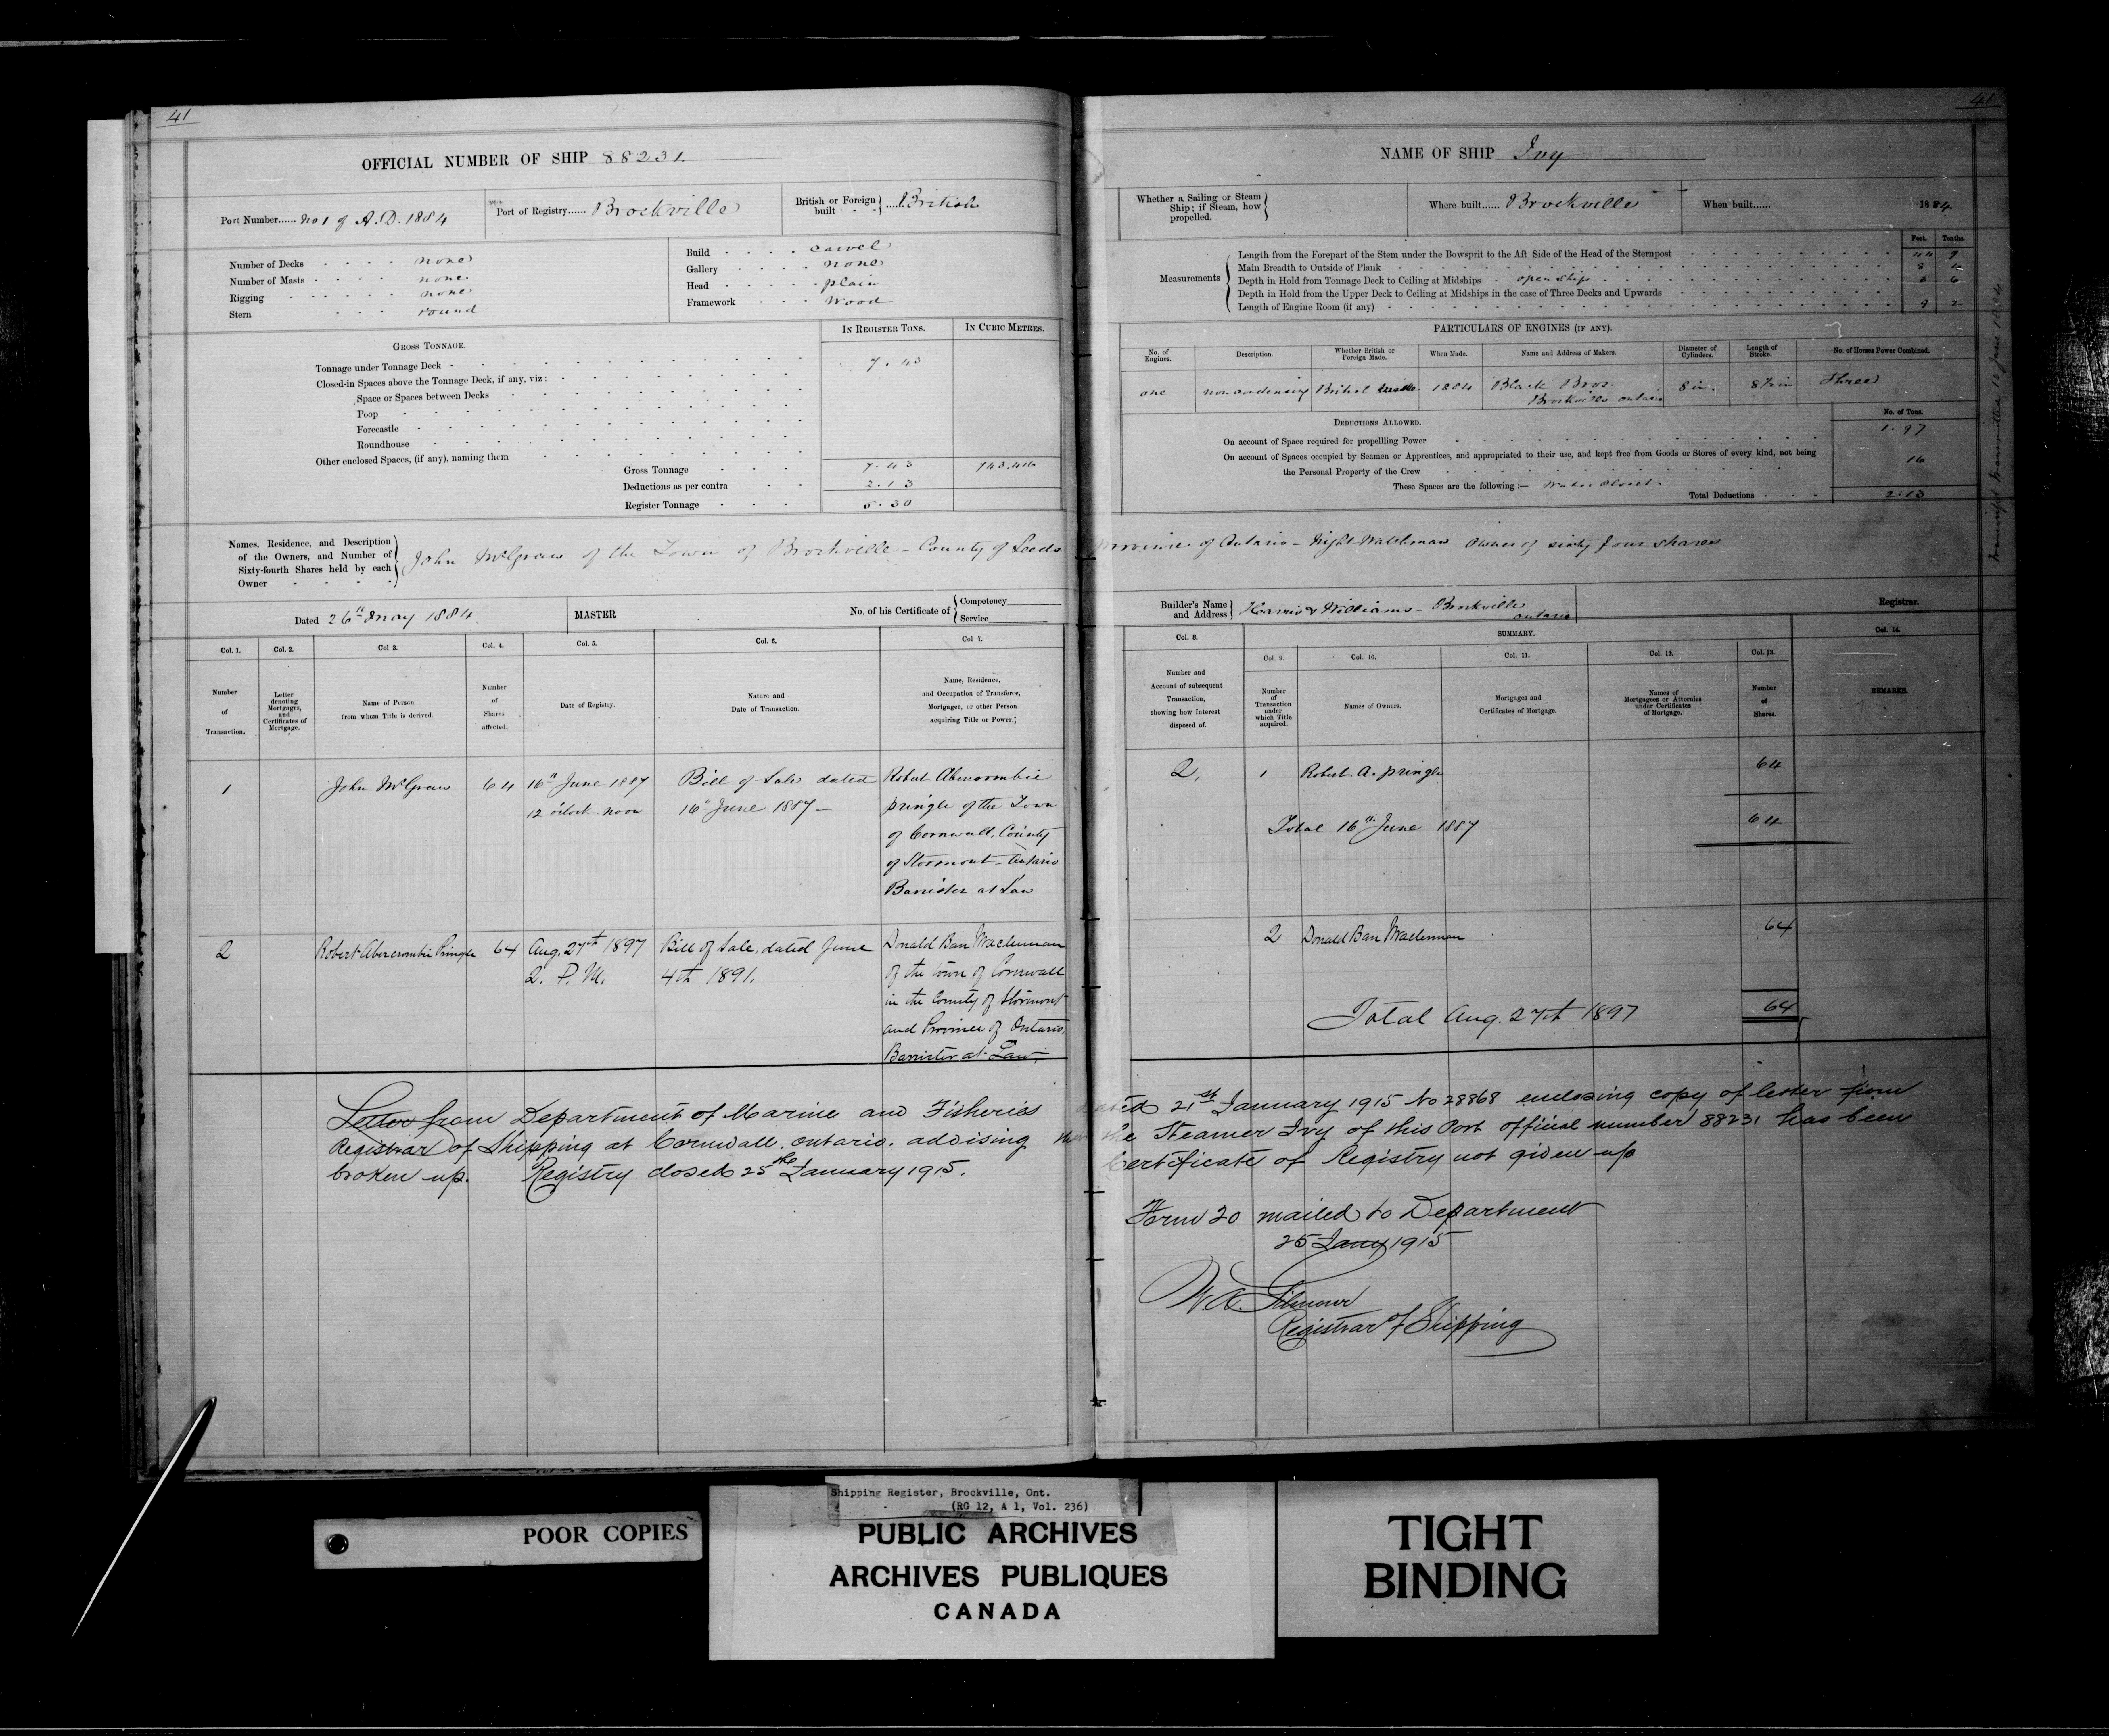 41
OFFICIAL NUMBER OF SHIP 88231.
Port Number...... No 1 of A.D. 1884
Port of Registry...... Brockville
British or Foreign built - - } ..... British
Number of Decks - - - - none
Number of Masts - - - - none
Rigging - - - - - none
Stern - - - round
Build - - - - carvel
Gallery - - - - none
Head - - - - plain
Framework - - - wood
IN REGISTER TONS.
IN CUBIC METRES.
GROSS TONNAGE.
Tonnage under Tonnage Deck - 7.43
Closed-in Spaces above the Tonnage Deck, if any, viz:
Space or Spaces between Decks
Poop
Forecastle
Roundhouse
Other enclosed Spaces, (if any), naming them
Gross Tonnage 7.43
Deductions as per contra 2.13
Register Tonnage 5.30
Names, Residence, and Description
of the Owners, and Number of
Sixty-fourth Shares held by each
Owner
John McGraw of the Town of Brockville - County of Leeds
Dated 26th May 1884
MASTER
No. of his Certificate of { Competency
Service
Col. 1.
Number
of
Transaction.
Col. 2.
Letter
denoting
Mortgages,
and
Certificates of
Mortgage.
Col 3.
Name of Person
from whom Title is derived.
Col. 4.
Number
of
Shares
affected.
Col. 5.
Date of Registry.
Col. 6.
Nature and
Date of Transaction.
Col 7.
Name, Residence,
and Occupation of Transferee,
Mortgagee, or other Person
acquiring Title or Power.
1
John McGraw
64
16th June 1887
12 o'clock noon
Bill of Sale dated
16th June 1887 -
Robert Abercrombie
Pringle of the Town
of Cornwall, County
of Stormont - Ontario
Barrister at Law
2
Robert Abercrombie Pringle
64
Aug. 27th 1897
2. P. M.
Bill of Sale, dated June
4th 1891.
Donald Ban Maclennan
of the town of Cornwall
in the County of Stormont
and Province of Ontario,
Barrister at Law
41
NAME OF SHIP Ivy
Whether a Sailing or Steam
Ship; if Steam, how
propelled.
Where built...... Brockville
When built...... 1884
Measurements
Feet. Tenths.
Length from the Forepart of the Stem under the Bowsprit to the Aft Side of the Head of the Sternpost 44 9
Main Breadth to Outside of Plank 8
Depth in Hold from Tonnage Deck to Ceiling at Midships - open ship 6
Depth in Hold from the Upper Deck to Ceiling at Midships in the case of Three Decks and Upwards
Length of Engine Room (if any) 9 2
PARTICULARS OF ENGINES (IF ANY).
No. of
Engines.
Description.
Whether British or
Foreign Made.
When Made.
Name and Address of Makers.
Diameter of
Cylinders.
Length of
Stroke.
No. of Horses Power Combined.
one
non condensing
British made
1884
Black Bros.
Brockville Ontario
8 in.
8½ in
Three
DEDUCTIONS ALLOWED.
No. of Tons.
On account of Space required for propelling Power 1.97
On account of Spaces occupied by Seamen or Apprentices, and appropriated to their use, and kept free from Goods or Stores of every kind, not being
the Personal Property of the Crew 16
These Spaces are the following:- Water Closet
Total Deductions 2.13
Province of Ontario - Night Watchman Owner of sixty four shares
Builder's Name
and Address
Harris & Williams - Brockville
Ontario
Registrar.
Col. 8.
Number and
Account of subsequent
Transaction,
showing how Interest
disposed of.
SUMMARY.
Col. 9.
Number
of
Transaction
under
which Title
acquired.
Col. 10.
Names of Owners.
Col. 11.
Mortgages and
Certificates of Mortgage.
Col. 12.
Names of
Mortgagees or Attornies
under Certificates
of Mortgage.
Col. 13.
Number
of
Shares.
Col. 14.
REMARKS.
2.
1
Robert A. Pringle
64
Total 16th June 1887
64
2
Donald Ban Maclennan
64
Total Aug. 27th 1897
64
Letter from Department of Marine and Fisheries dated 21st January 1915 No 28868 enclosing copy of letter from
Registrar of Shipping at Cornwall, Ontario. advising the Steamer Ivy of this Port official number 88231 has been
broken up. Registry closed 25th January 1915. Certificate of Registry not given up
Form 20 mailed to Department
25 Jany 1915
W A. Gilmour
Registrar of Shipping
POOR COPIES
Shipping Register, Brockville, Ont.
(RG 12, A 1, Vol. 236)
PUBLIC ARCHIVES
ARCHIVES PUBLIQUES
CANADA
TIGHT
BINDING